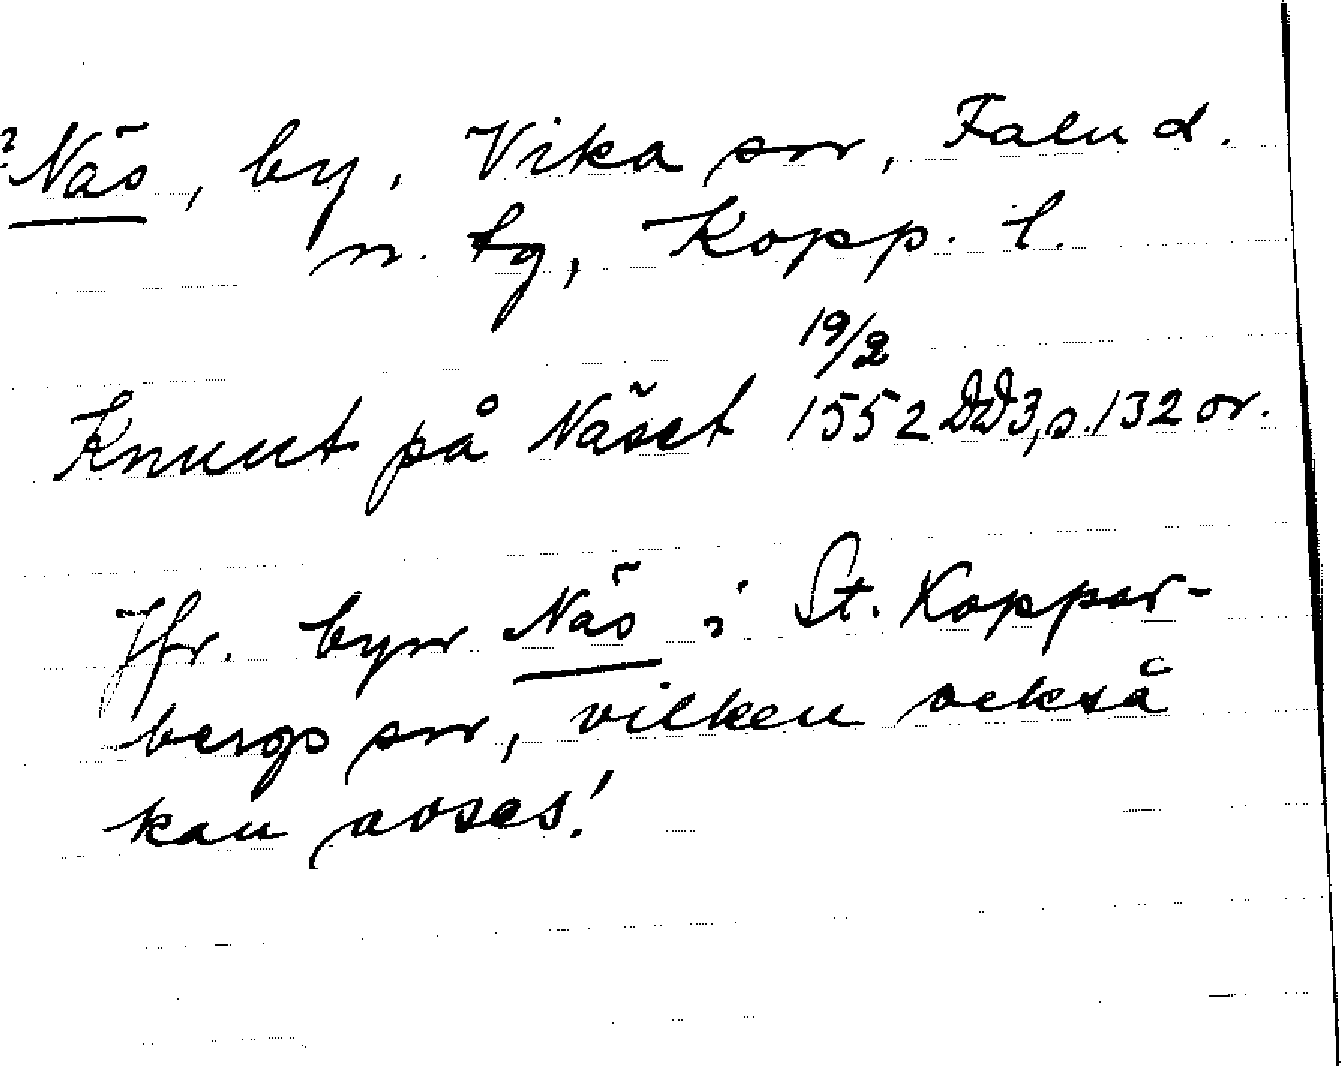 ? Näs, by, Vika sn, Falu d.
n. tg, Kopp. l.
19/2
Knuut på Näset 1552 DD3, s. 132 or.
Jfr. byn Näs i St. Koppar-
bergs sn, vilken också
kan avses!